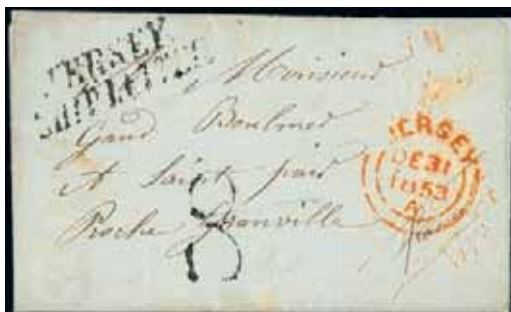 JERSEY
SHIP LETTER
Monsieur
Gaud Boulmer
A Saint pair
Proche Granville
8
JERSEY
DE 31
1853
A